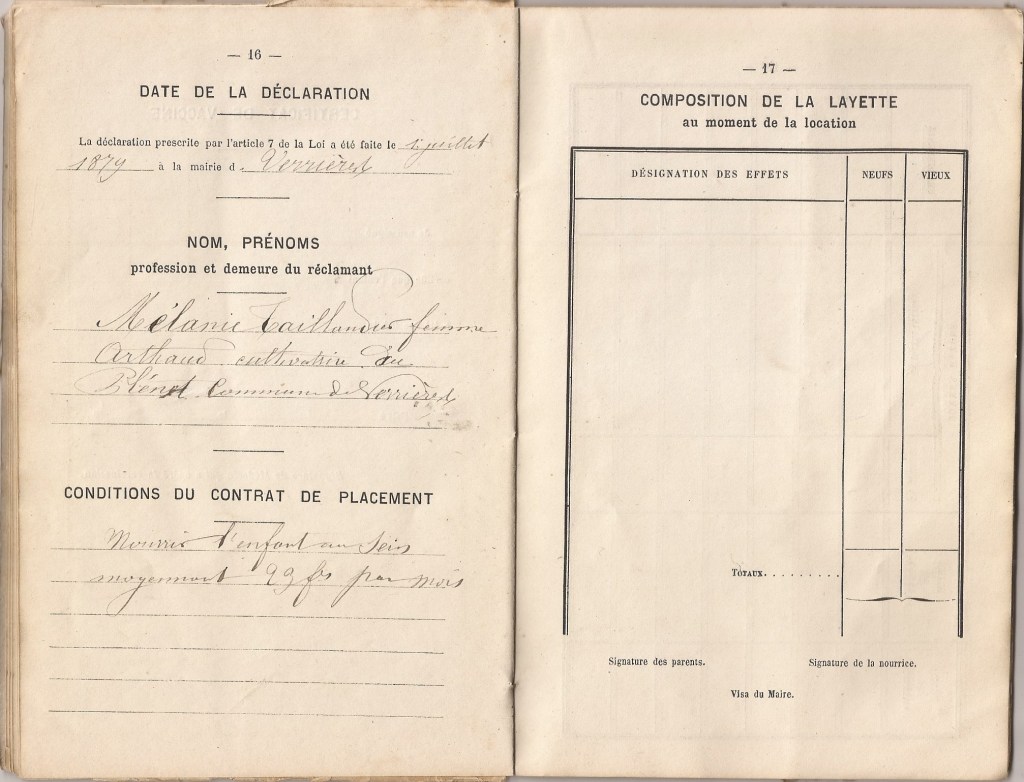 — 16 —
DATE DE LA DÉCLARATION
La déclaration prescrite par l'article 7 de la Loi a été faite le juillet
1879 à la mairie d. Verrières
NOM, PRÉNOMS
profession et demeure du réclamant
Mélanie Taillandier femme
Arthaud cultivatrice du
Commune de Verrières
CONDITIONS DU CONTRAT DE PLACEMENT
Nourrir l'enfant au sein
moyennant 23 frs par mois
— 17 —
COMPOSITION DE LA LAYETTE
au moment de la location
DÉSIGNATION DES EFFETS NEUFS VIEUX
TOTAUX. . . . . . . .
Signature des parents. Signature de la nourrice.
Visa du Maire.